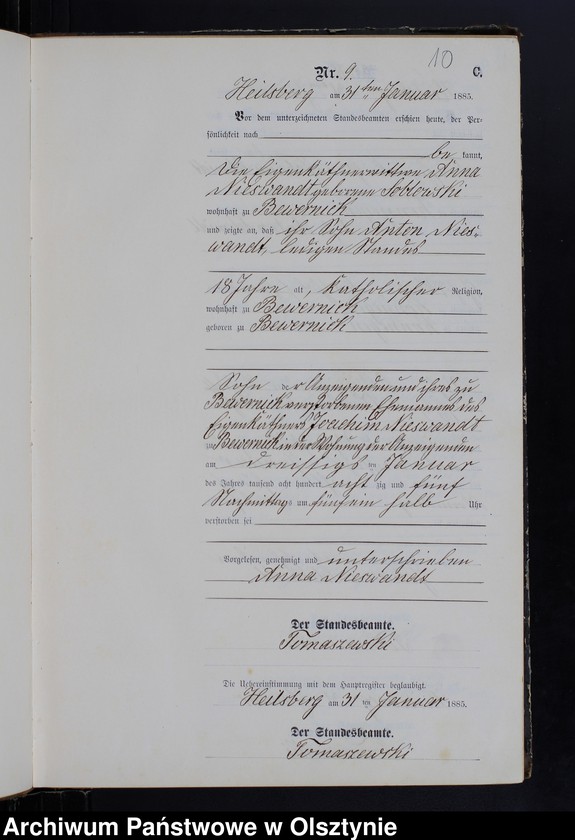 10
Nr. 9. C.
Heilsberg am 31ten Januar 1885.
Vor dem unterzeichneten Standesbeamten erschien heute, der Per-
sönlichkeit nach
be kannt,
die Eigenkäthnerwittwe Anna
Nieswandt geborene Soblowski
wohnhaft zu Bewernick
und zeigte an, daß ihr Sohn Anton Nies-
wandt, ledigen Standes
18 Jahre alt, katholischer Religion,
wohnhaft zu Bewernick
geboren zu Bewernick
Sohn der Anzeigenden und ihres zu
Bewernick verstorbenen Ehemannes des
Eigenkäthners Joachim Nieswandt
zu Bewernick in der Wohnung der Anzeigenden
am dreissigsten Januar
des Jahres tausend acht hundert achtzig und fünf
Nachmittags um fünf ein halb Uhr
verstorben sei
Vorgelesen, genehmigt und unterschrieben
Anna Nieswandt
Der Standesbeamte.
Tomaszewski
Die Uebereinstimmung mit dem Hauptregister beglaubigt.
Heilsberg am 31 ten Januar 1885.
Der Standesbeamte.
Tomaszewski
Archiwum Państwowe w Olsztynie